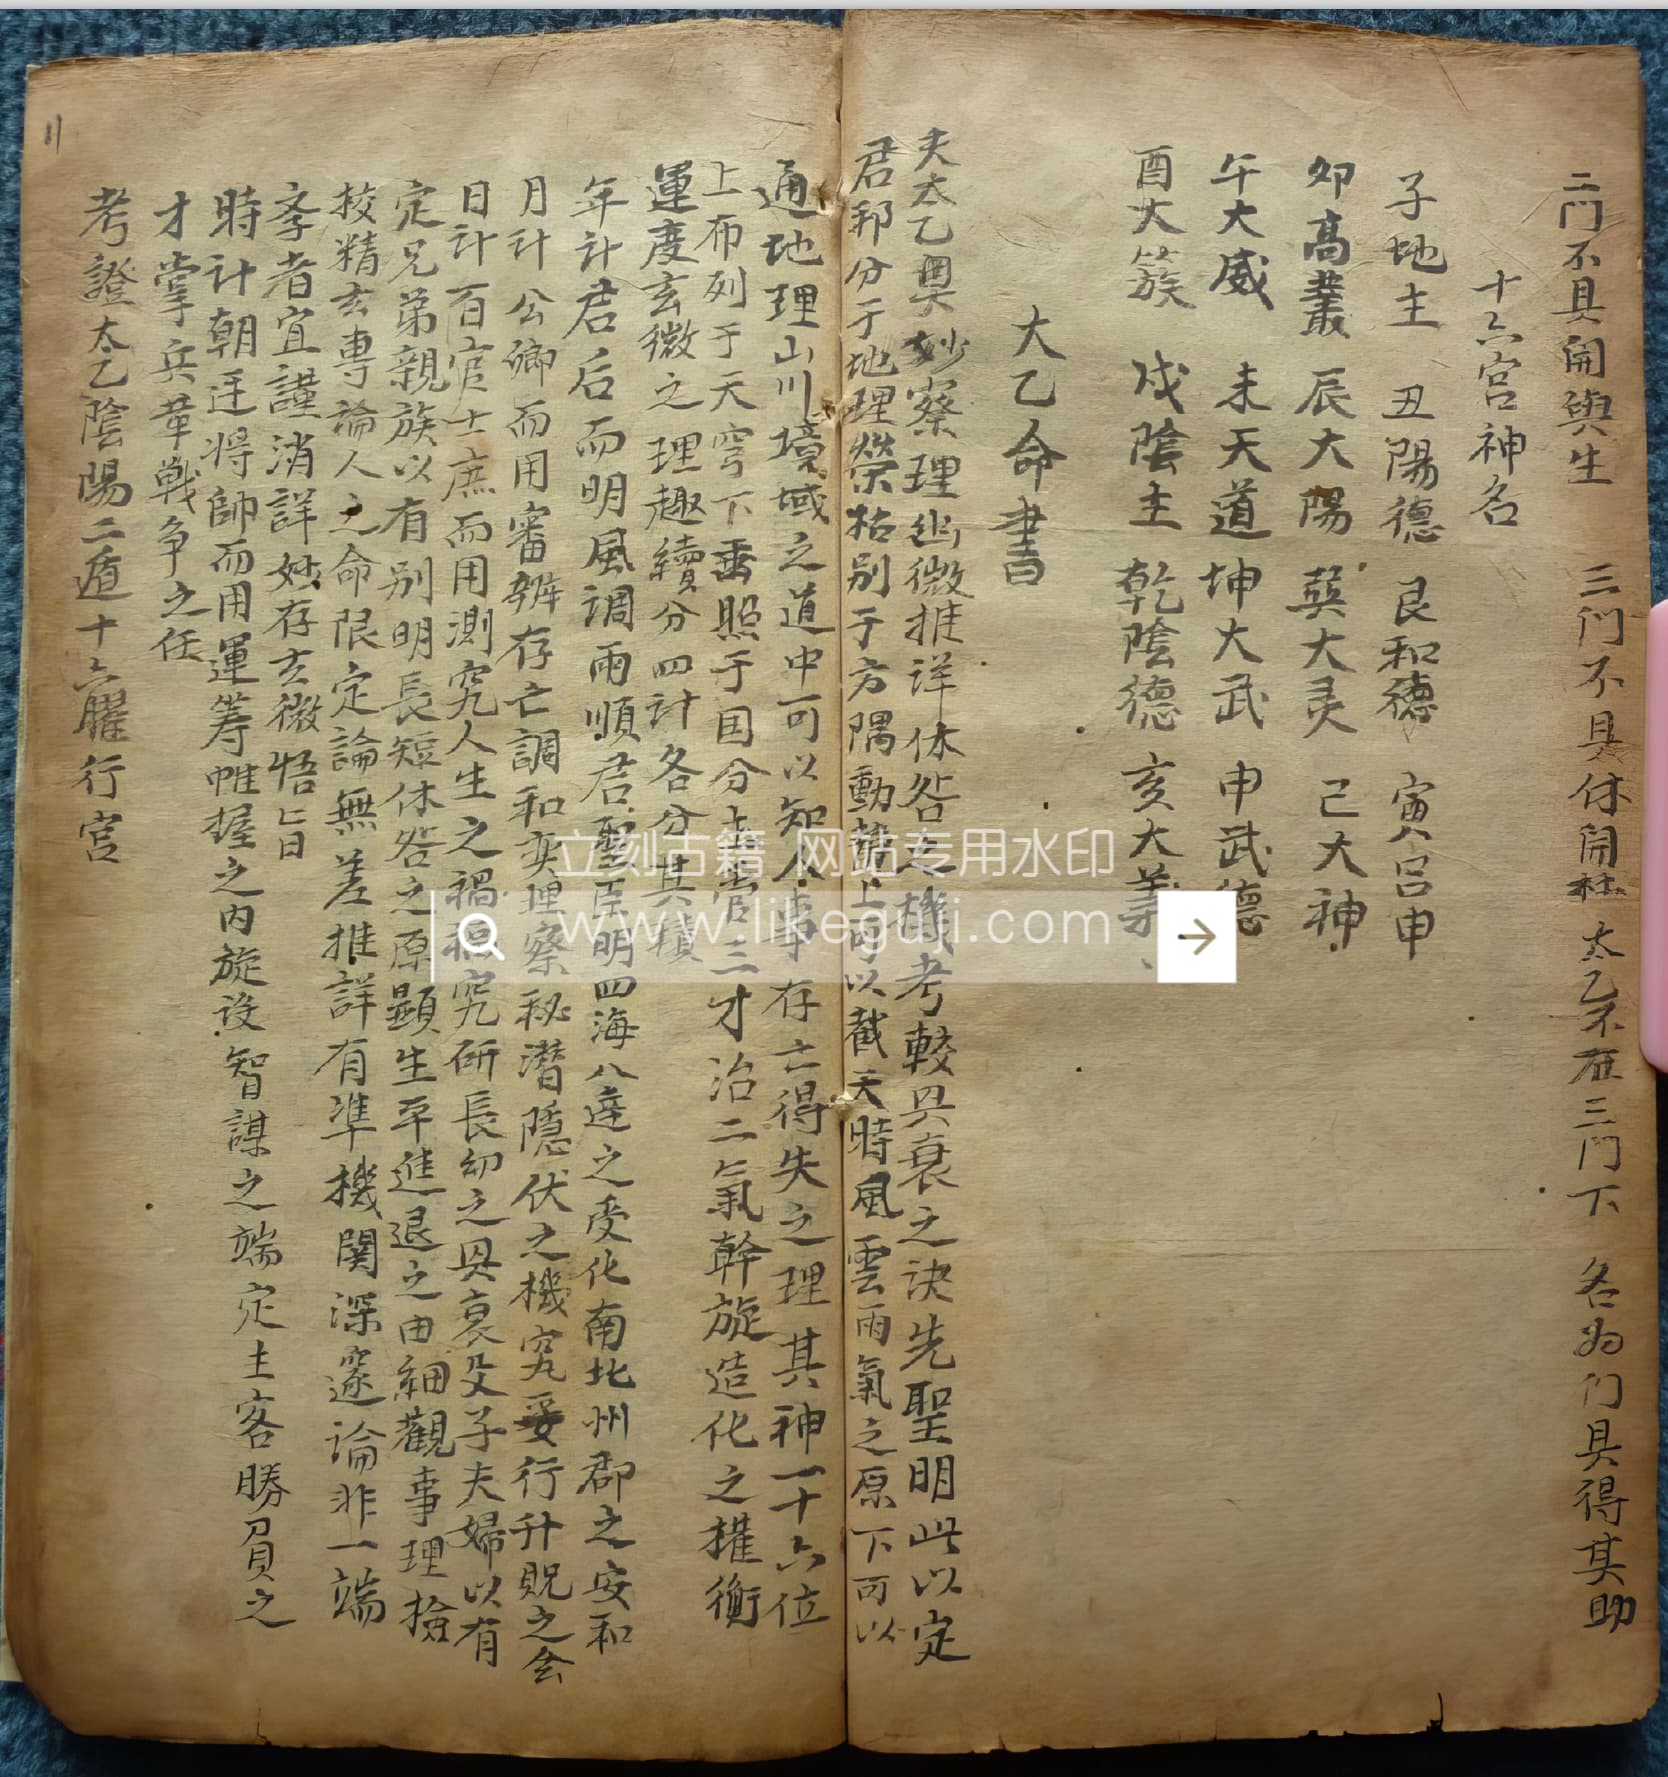 二门不具開與生　三门不具休開杜　太乙不在三门下　各为门具得其助
十六宫神名
子地主　丑陽德　艮和德　寅吕申
卯高叢　辰大陽　巽大灵　己大神
午大威　未天道　坤大武　申武德
酉大簇　戌陰主　乾陰德　亥大義
大乙命書
夫太乙奥妙察理幽微推详休咎之機考較具衰之决先聖明此以定
君邦分于地理榮枯别于方隅動静上可以截天時風雲雨氣之原下可以
通地理山川境域之道中可以知人事存亡得失之理其神一十六位
上布列于天穹下垂照于国分主管三才治二氣幹旋造化之權衡
運度玄微之理趣續分四計各分其積
年計君后而明風調雨順君聖臣明四海八逵之受化南北州郡之安和
月計公卿而用審辨存亡調和奕理察秘潛隱伏之機究妥行升贶之会
日计百官士庶而用測究人生之禍福究研長幼之具衰父子夫婦以有
定兄弟親族以有别明長短休咎之原顯生平進退之由細觀事理撿
校精玄專論人之命限定論無差推詳有準機関深邃論非一端
孝者宜謹消詳妙存玄微悟旨
時计朝廷将帥而用運筹帷握之内旋设智謀之端定主客勝負之
才掌兵革戰争之任
考證太乙陰陽二遁十六曜行宫
立刻古籍 网站专用水印
www.likeguji.com